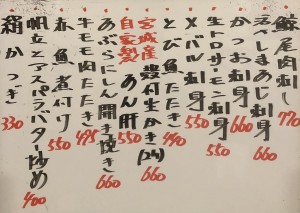 鯨尾肉刺し 770
活〆しまあじ刺身 660
かつお刺身 660
生トロサーモン刺身 550
メバル刺身 550
とび魚たたき 440
宮城産殻付生かき(2ヶ) 660
自家製あん肝 550
あぶらにしん開き焼き 660
牛モモ肉たたき 495
赤魚煮付け 550
帆立とアスパラバター炒め 400
絹かつぎ 330